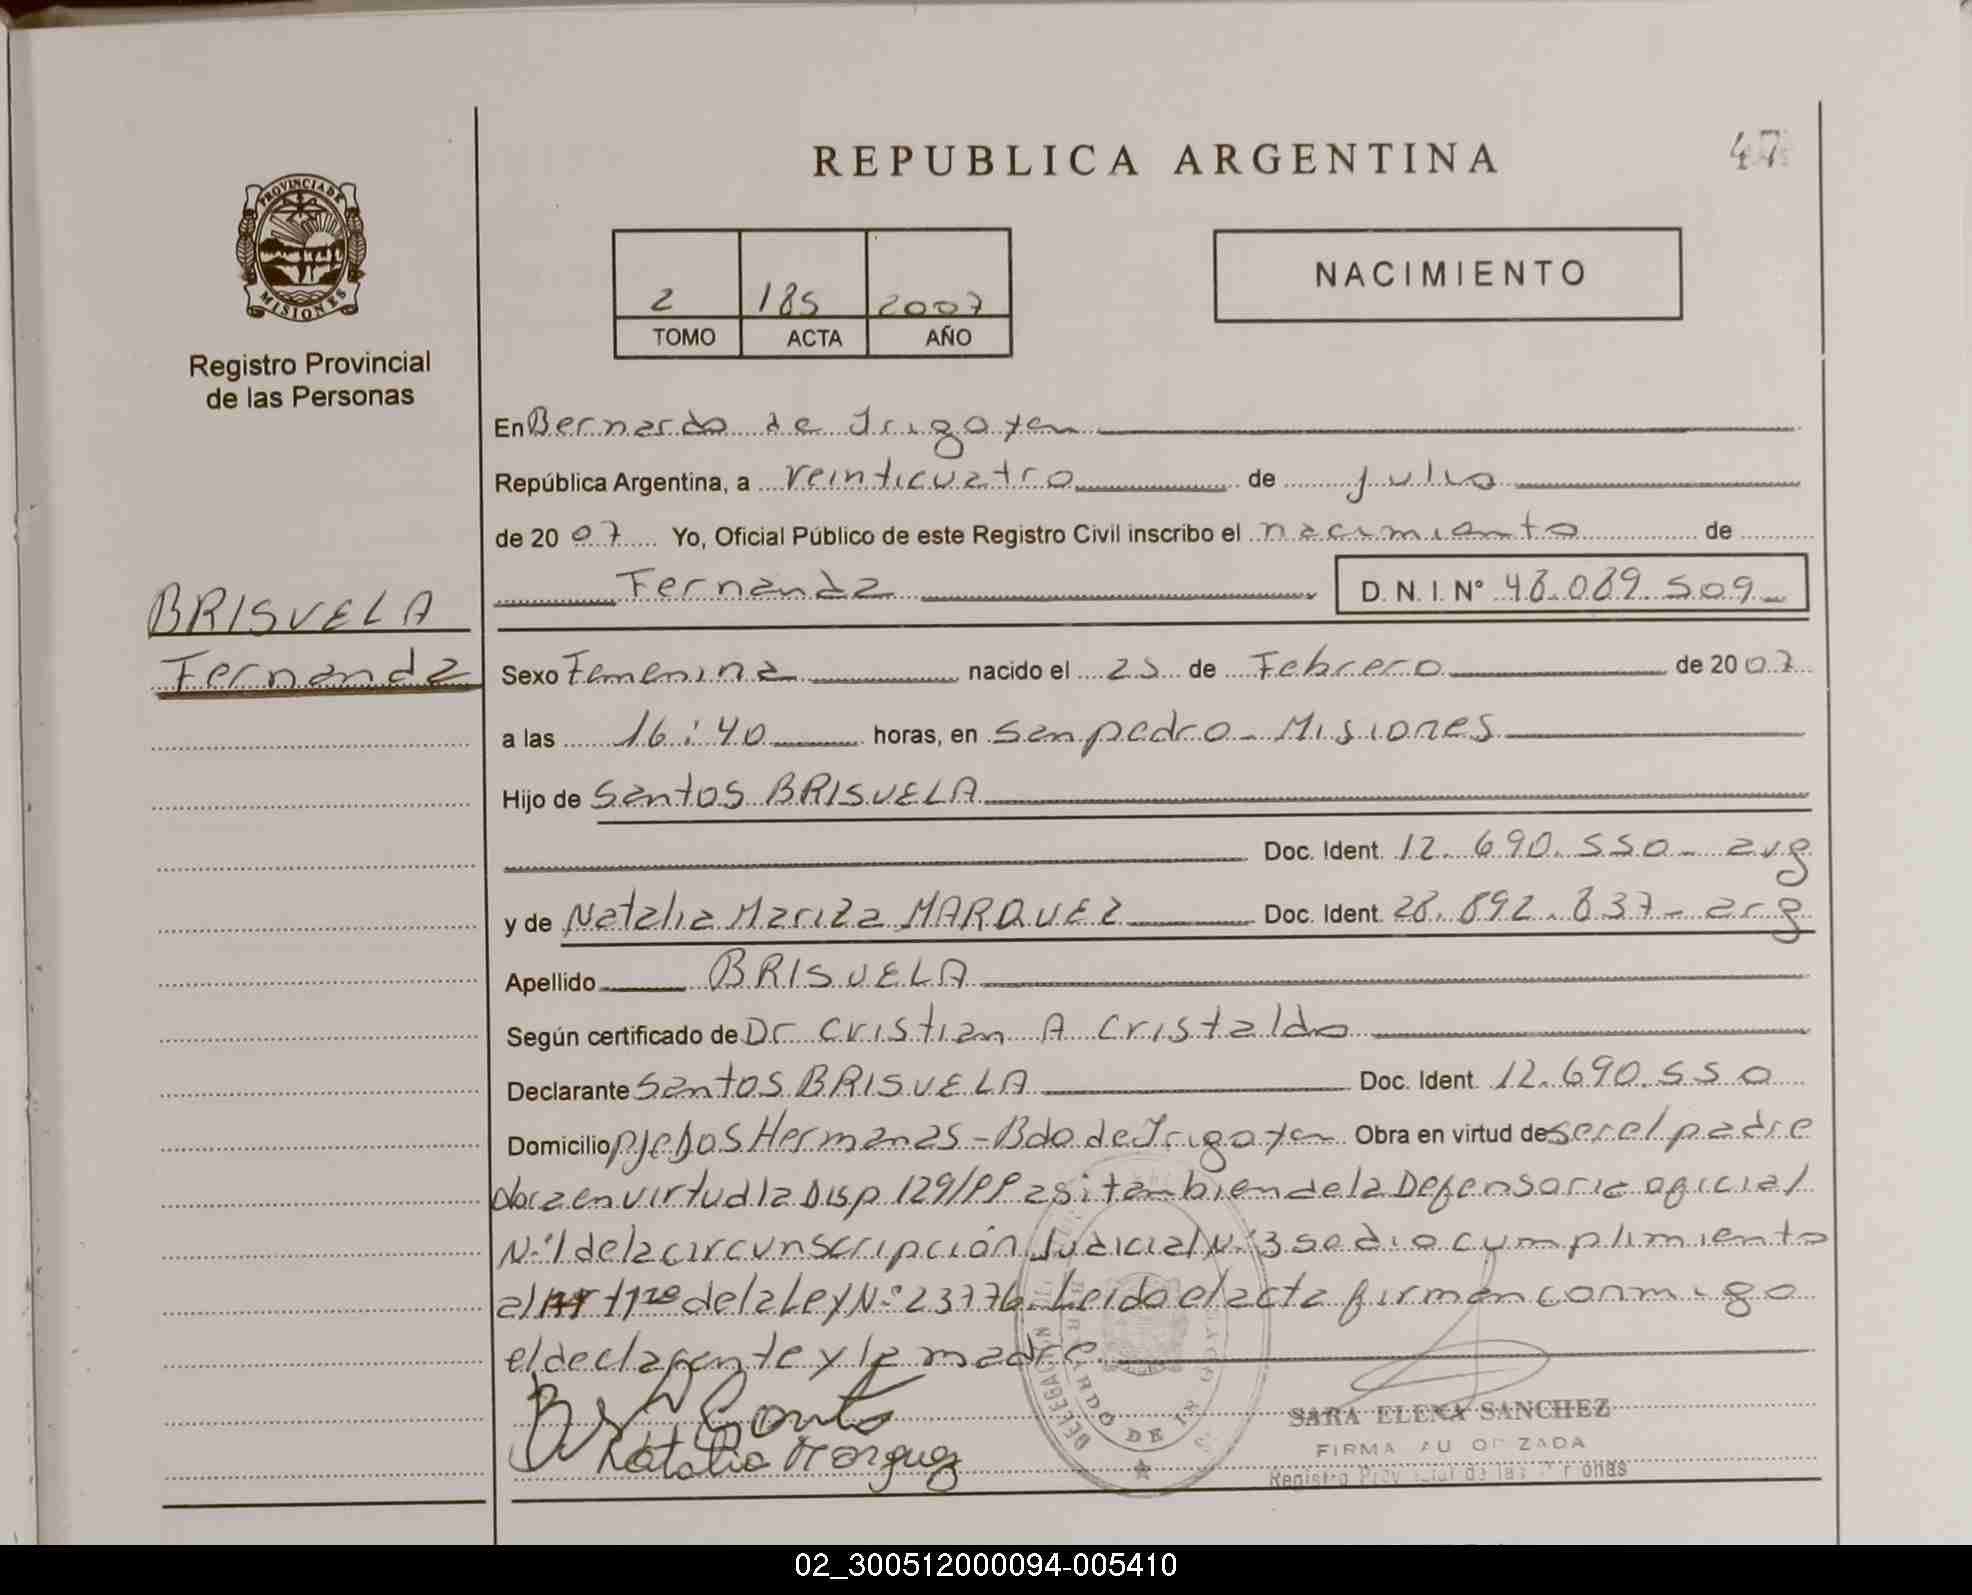 REPUBLICA ARGENTINA
47
PROVINCIA DE
MISIONES
Registro Provincial
de las Personas
2 185 2007
TOMO ACTA AÑO
NACIMIENTO
En Bernardo de Irigoyen
República Argentina, a veinticuatro de julio
de 2007 Yo, Oficial Público de este Registro Civil inscribo el nacimiento de
Fernanda D. N. I. Nº 48.089.509
BRISUELA
Fernanda
Sexo Femenina nacido el 25 de Febrero de 2007
a las 16:40 horas, en San pedro - Misiones
Hijo de Santos BRISUELA
Doc. Ident. 12.690.550 - arg
y de Natalia Mariza MARQUEZ Doc. Ident. 28.892.837 - arg
Apellido BRISUELA
Según certificado de Dr Cristian A Cristaldo
Declarante Santos BRISUELA Doc. Ident. 12.690.550
Domicilio Pje Dos Hermanas - Bdo de Irigoyen Obra en virtud de ser el padre
obra en virtud la Disp 129/PP asi tambien de la Defensoria oficial
N.º 1 de la circunscripción Judicial N.º 3 se dio cumplimiento
al Art 1ro de la Ley N.º 23776. Leido el acta firman conmigo
el declarante y la madre.
Natalia Marquez
DELEGACION
BERNARDO DE IRIGOYEN
SARA ELENA SANCHEZ
FIRMA AUTORIZADA
Registro Provincial de las Personas
02_300512000094-005410